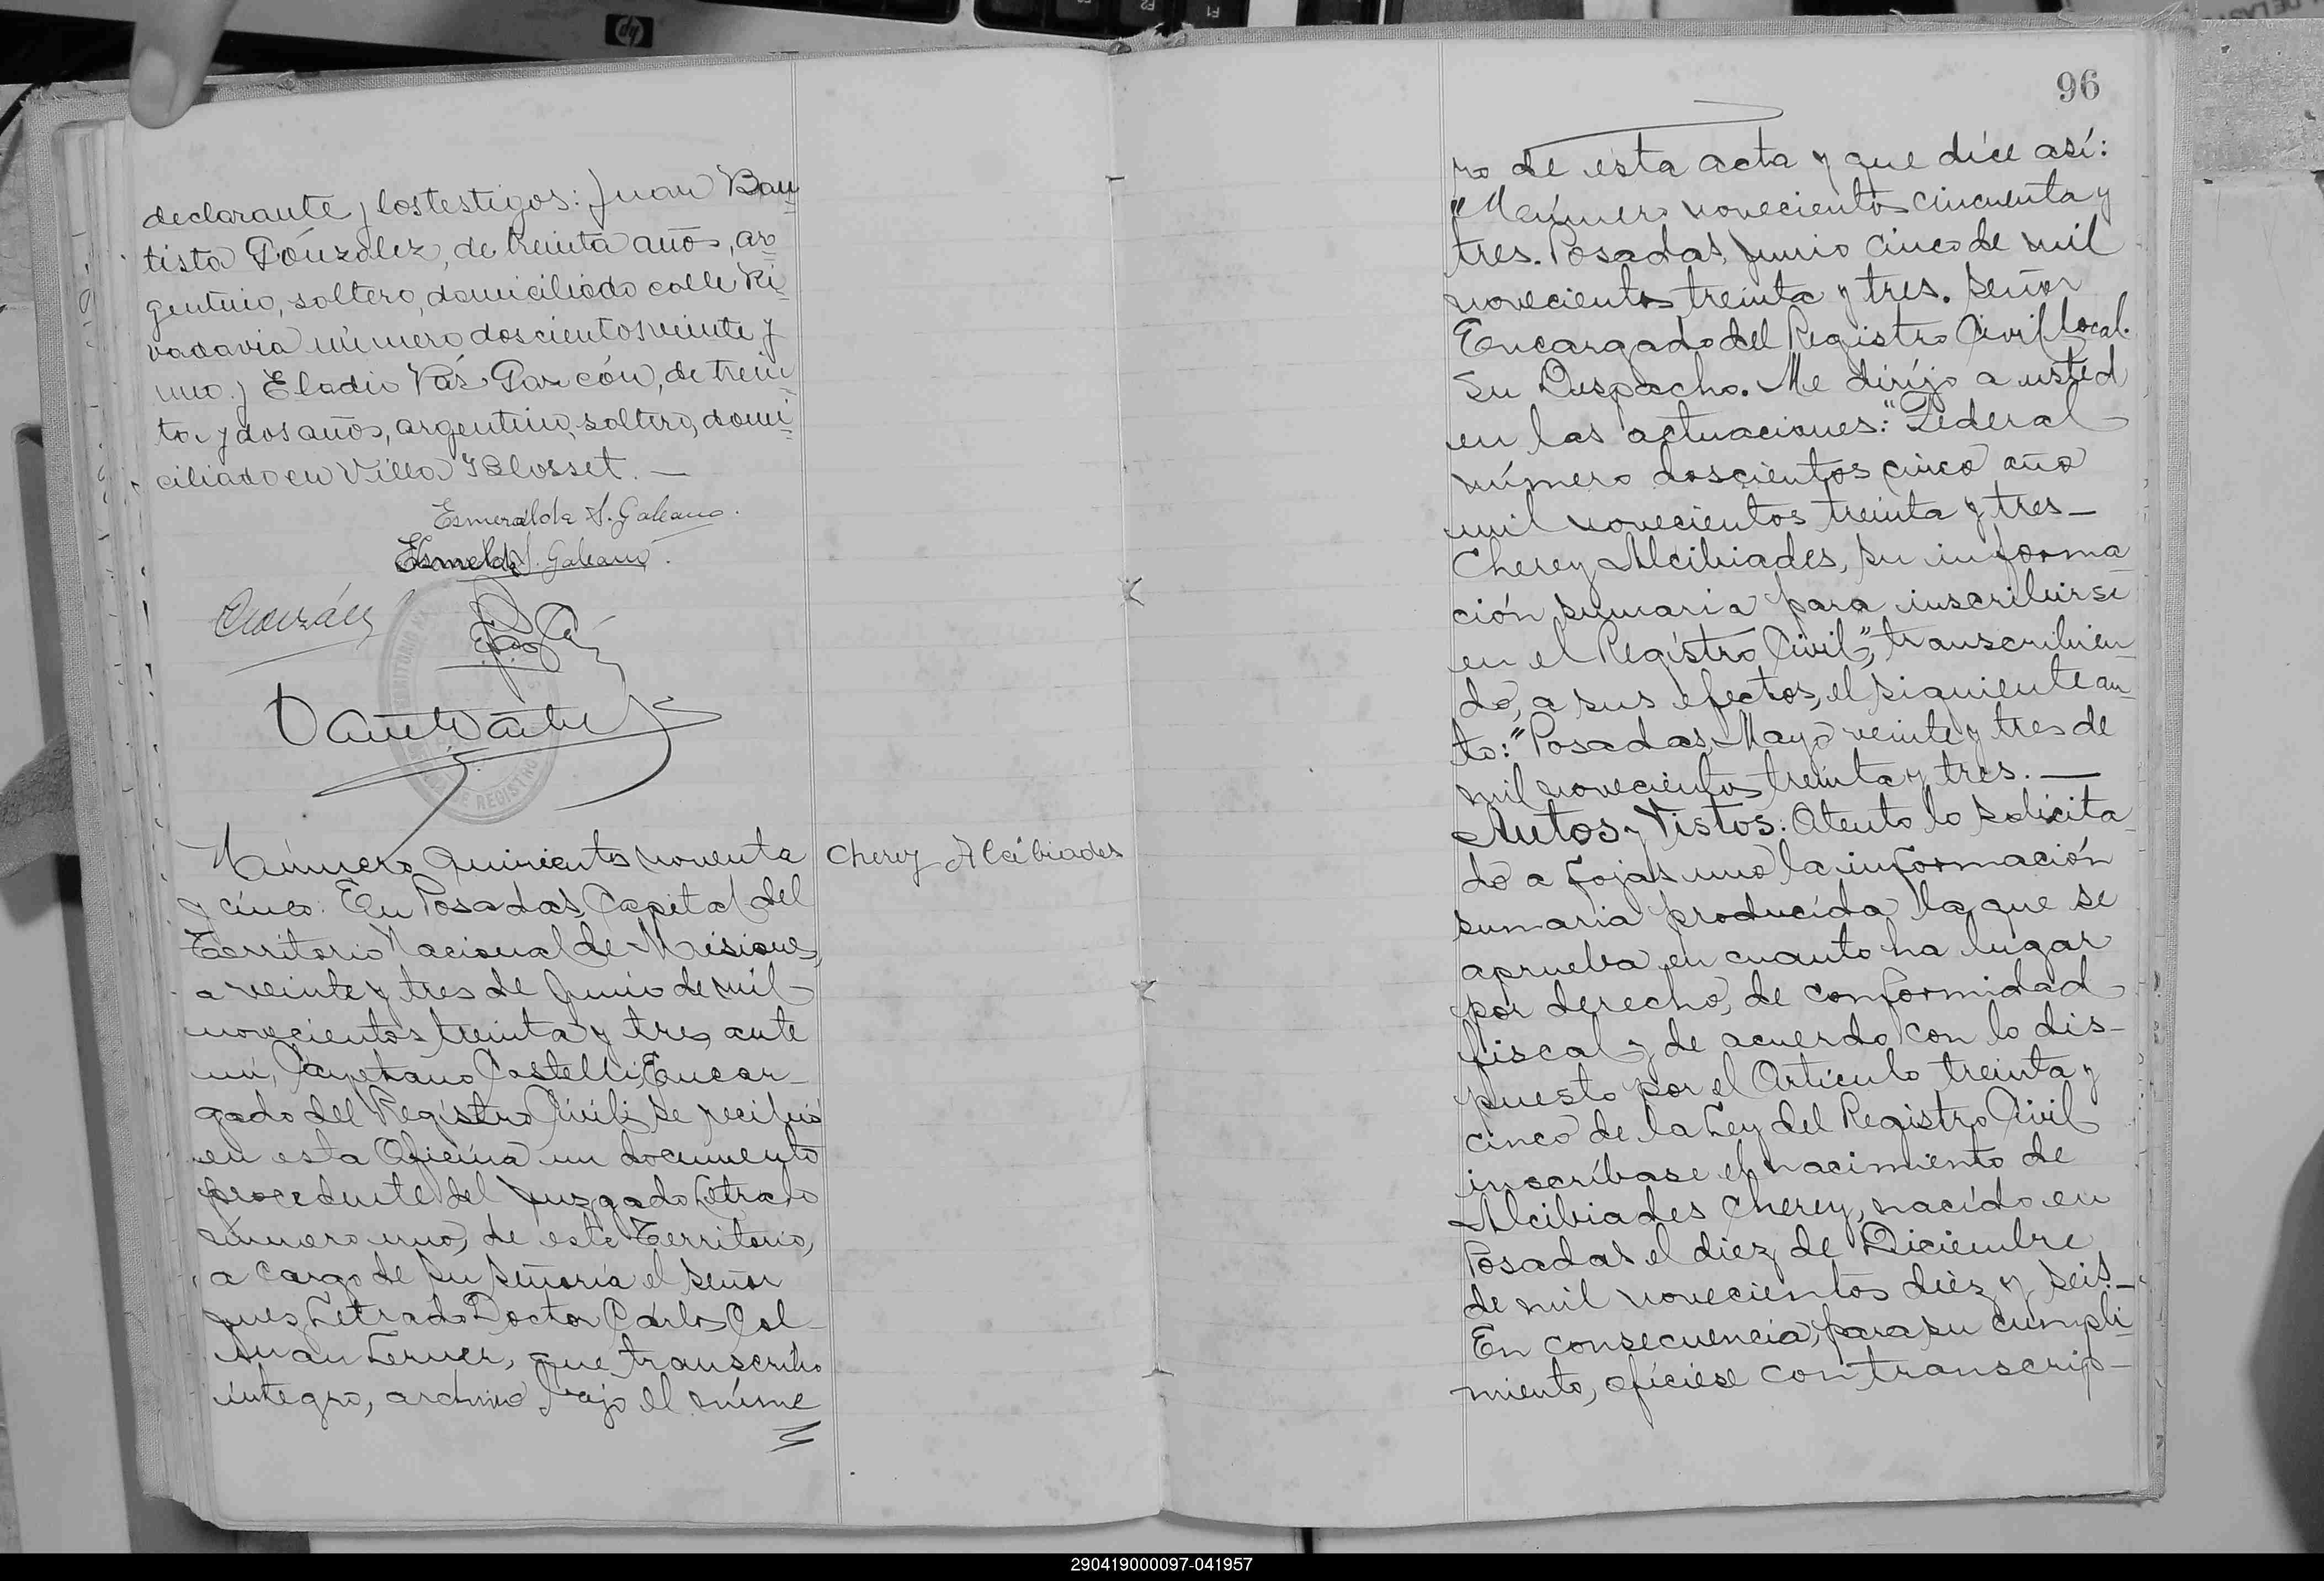 declarante y los testigos: Juan Bau=
tista Gónzalez, de treinta años, ar=
gentino, soltero, domiciliado calle Ri=
vadavia número doscientos veinte y
uno y Eladio Vás Garcón, de trein=
ta y dos años, argentino, soltero, domi=
ciliado en Villa Blosset. —
Esmeralda S. Galeano.
Esmelda S. Galeano.
Número quinientos noventa
y cinco: En Posadas, Capital del
Territorio Nacional de Misiones,
a veinte y tres de Junio de mil
novecientos treinta y tres, ante
mí, Cayetano Castelli, Encar-
gado del Registro Civil; se recibió
en esta Oficina un documento
procedente del Juzgado Letrado
número uno, de este Territorio,
a cargo de su señoría el señor
Juez Letrado Doctor Carlos Col-
man Lerner, que transcribo
íntegro, archivo bajo el núme
Cherey Alcibiades
96
ro de esta acta y que dice así:
"Número novecientos cincuenta y
tres. Posadas, Junio cinco de mil
novecientos treinta y tres. Señor
Encargado del Registro Civil local.
Su Despacho. Me dirijo a usted
en las actuaciones: "Federal
número doscientos cinco año
mil novecientos treinta y tres—
Cherey Alcibiades, su informa
ción sumaria para inscribirse
en el Registro Civil", transcribien-
do, a sus efectos, el siguiente au-
to: "Posadas, Mayo veinte y tres de
mil novecientos treinta y tres. —
Autos y Vistos: Atento lo solicita-
do a fojas uno la información
sumaria producida la que se
aprueba en cuanto ha lugar
por derecho, de conformidad
fiscal y de acuerdo con lo dis-
puesto por el Artículo treinta y
cinco de la Ley del Registro Civil
inscríbase el nacimiento de
Alcibiades Cherey, nacido en
Posadas el diez de Diciembre
de mil novecientos diez y seis.—
En consecuencia, para su cumpli-
miento, ofíciese con transcrip-
290419000097-041957